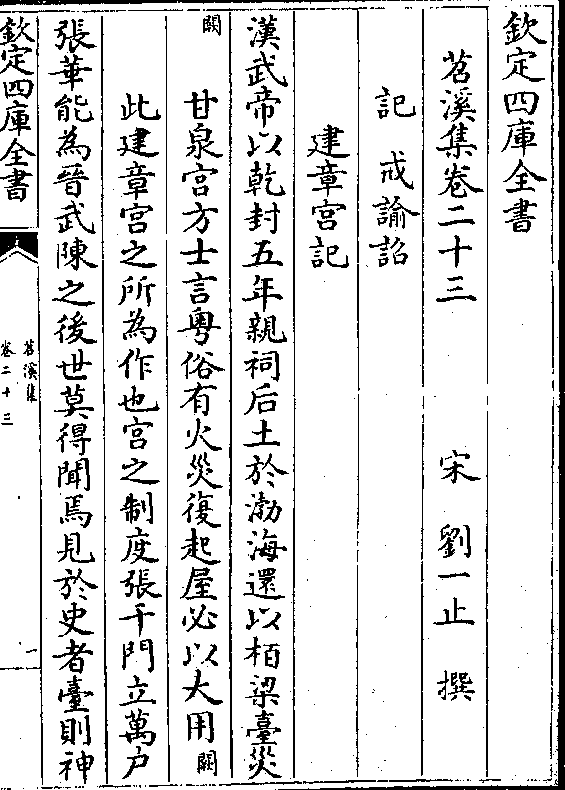 欽定四庫全書
苕溪集卷二十三
宋 劉一止 撰
記 戒諭詔
建章宫記
漢武帝以乾封五年親祠后土於渤海還以栢梁臺災
闕 甘泉宫方士言粤俗有火災復起屋必以大用闕
此建章宫之所為作也宫之制度張千門立萬户
張華能為晉武陳之後世莫得聞焉見於史者臺則神
欽定四庫全書
苕溪集
卷二十三
一